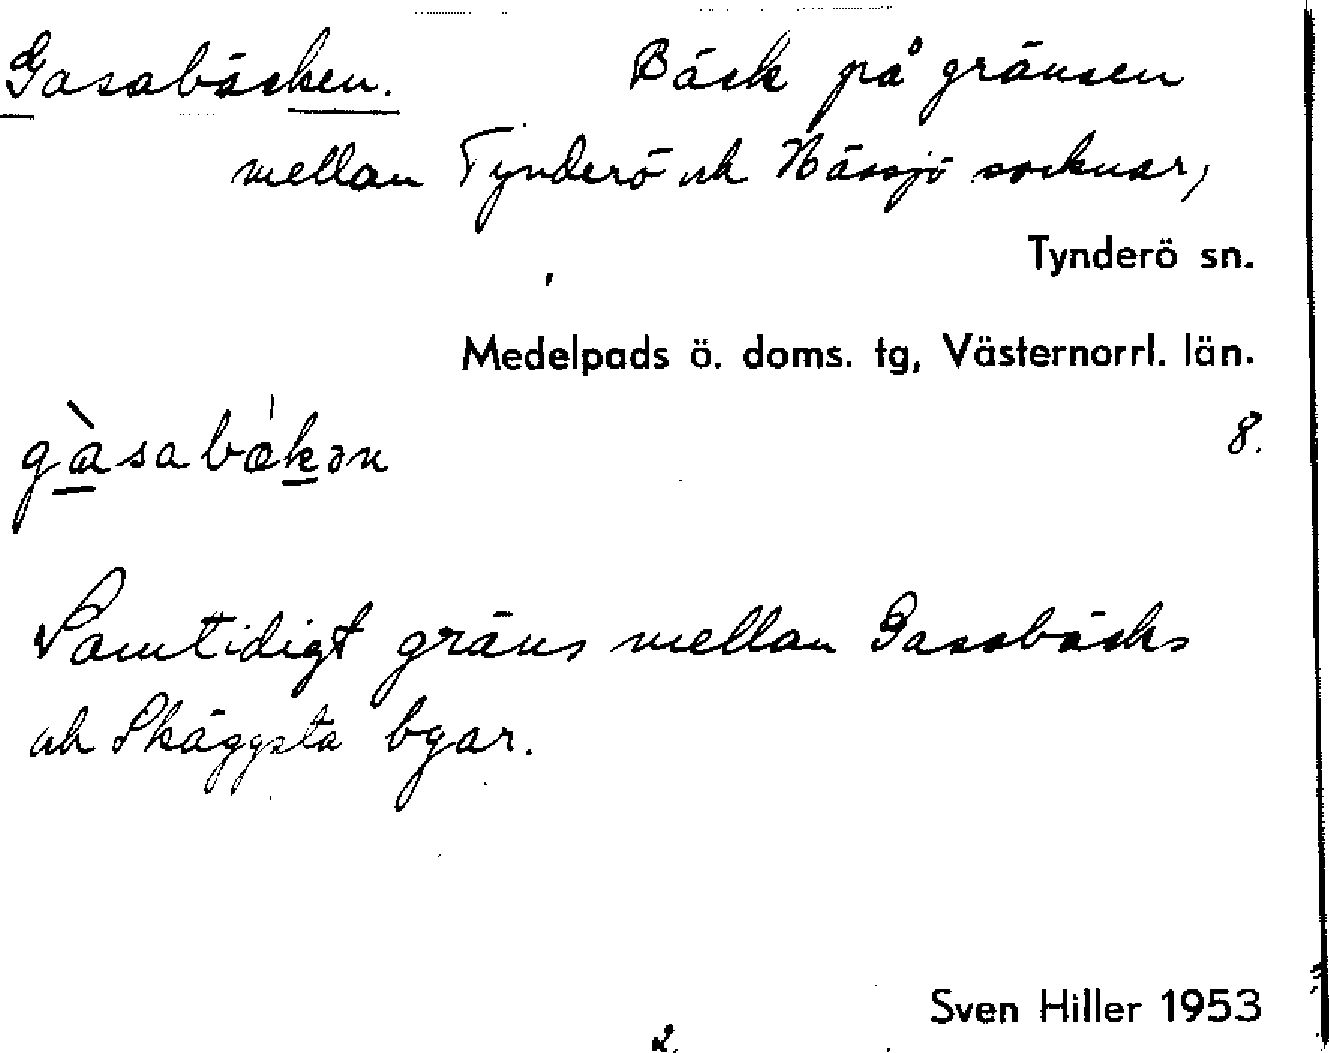 Gasabäcken. Bäck på gränsen
mellan Tynderö och Hässjö socknar,
Tynderö sn.
Medelpads ö. doms. tg, Västernorrl. län.
8.
gàsabækən
Samtidigt gräns mellan Gasabäcks
och Skäggsta byar.
Sven Hiller 1953
2.